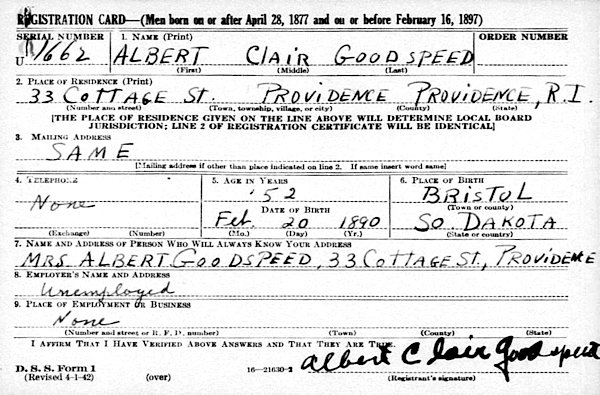 REGISTRATION CARD—(Men born on or after April 28, 1877 and on or before February 16, 1897)
SERIAL NUMBER 1. NAME (Print) ORDER NUMBER
U 1662 ALBERT CLAIR GOODSPEED
(First) (Middle) (Last)
2. PLACE OF RESIDENCE (Print)
33 COTTAGE ST. PROVIDENCE PROVIDENCE, R.I.
(Number and street) (Town, township, village, or city) (County) (State)
[THE PLACE OF RESIDENCE GIVEN ON THE LINE ABOVE WILL DETERMINE LOCAL BOARD
JURISDICTION; LINE 2 OF REGISTRATION CERTIFICATE WILL BE IDENTICAL]
3. MAILING ADDRESS
SAME
[Mailing address if other than place indicated on line 2. If same insert word same]
4. TELEPHONE 5. AGE IN YEARS 6. PLACE OF BIRTH
None 52 BRISTOL
DATE OF BIRTH (Town or county)
Feb. 20 1890 SO DAKOTA
(Exchange) (Number) (Mo.) (Day) (Yr.) (State or country)
7. NAME AND ADDRESS OF PERSON WHO WILL ALWAYS KNOW YOUR ADDRESS
MRS ALBERT GOODSPEED, 33 COTTAGE ST., PROVIDENCE
8. EMPLOYER'S NAME AND ADDRESS
Unemployed
9. PLACE OF EMPLOYMENT OR BUSINESS
None
(Number and street or R. F. D. number) (Town) (County) (State)
I AFFIRM THAT I HAVE VERIFIED ABOVE ANSWERS AND THAT THEY ARE TRUE.
D. S. S. Form 1 Albert Clair Goodspeed
(Revised 4-1-42) (over) 16—21630-2 (Registrant's signature)